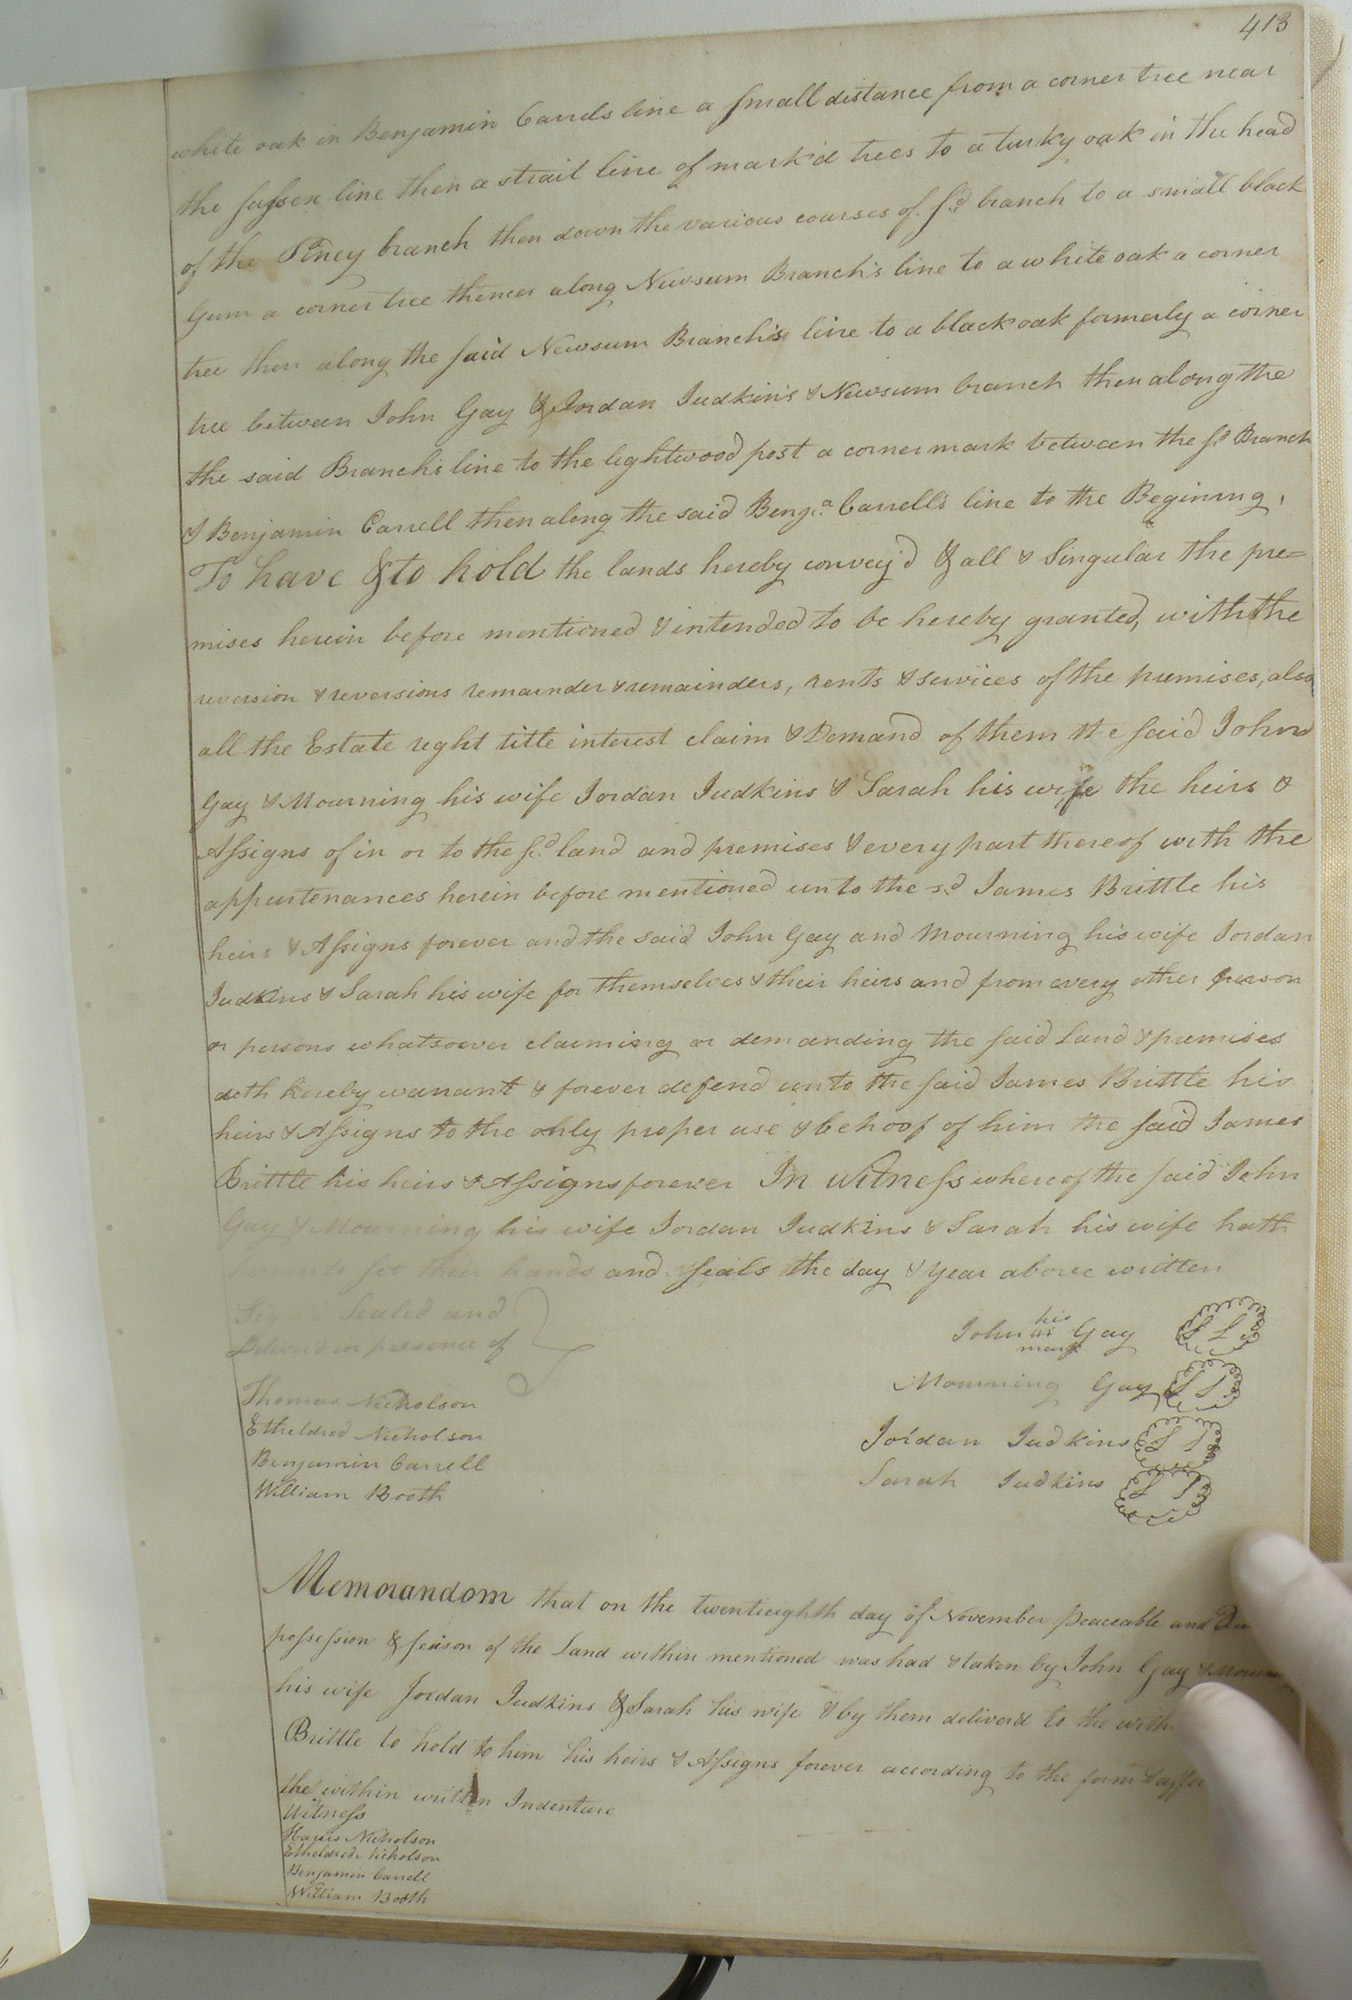 413
white oak in Benjamin Carrels line a small distance from a corner tree near
the sussex line then a strait line of mark'd trees to a turky oak in the head
of the Piney branch then down the various courses of sd branch to a small black
Gum a corner tree thence along Newsum Branch's line to a white oak a corner
tree then along the said Newsum Branch's line to a black oak formerly a corner
tree between John Gay & Jordan Judkin's & Newsum branch then along the
the said Branch's line to the lightwood post a corner mark between the sd Branch
& Benjamin Carrell then along the said Benja. Carrell's line to the Begining,
To have & to hold the lands hereby convey'd & all & Singular the pre=
mises herein before mentioned & intended to be hereby granted, with the
reversion & reversions remainder & remainders, rents & services of the premises, also
all the Estate right title interest claim & Demand of them the said John
Gay & Mourning his wife Jordan Judkins & Sarah his wife the heirs &
Assigns of in or to the sd. land and premises & every part thereof with the
appurtenances herein before mentioned unto the sd James Brittle his
heirs & Assigns forever and the said John Gay and Mourning his wife Jordan
Judkins & Sarah his wife for themselves & their heirs and from every other person
or persons whatsoever claiming or demanding the said Land & premises
doth hereby warrant & forever defend unto the said James Brittle his
heirs & Assigns to the only proper use & behoof of him the said James
Brittle his heirs & Assigns forever In witness whereof the said John
Gay & Mourning his wife Jordan Judkins & Sarah his wife hath
hereunto set their hands and seals the day & year above written
Sign'd Sealed and
Deliver'd in presence of
Thomas Nicholson
Etheldred Nicholson
Benjamin Carrell
William Booth
his
John Gay LS
mark
Mourning Gay LS
Jordan Judkins LS
Sarah Judkins LS
Memorandom that on the twentieighth day of November peaceable and
possession & seison of the Land within mentioned was had & taken by John Gay &
his wife Jordan Judkins & Sarah his wife & by them deliver'd to the
Brittle to hold to him his heirs & Assigns forever according to the form &
the within written Indenture
Witness
Harris Nicholson
Etheldred Nicholson
Benjamin Carrell
William Booth